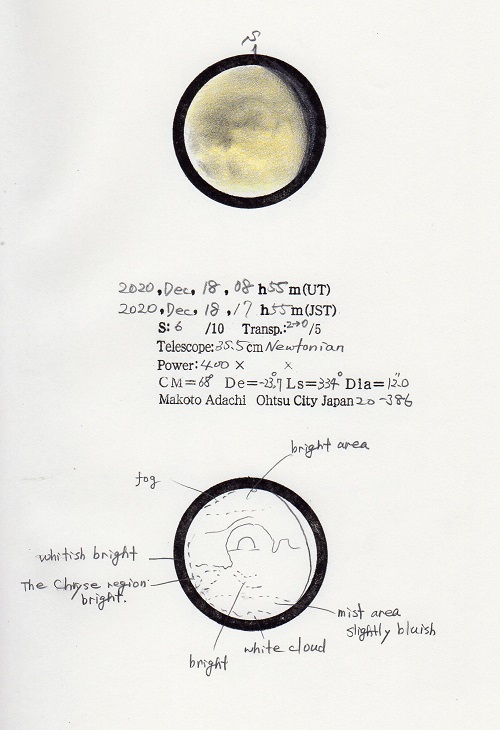 S
2020, Dec, 18, 08 h 55 m (UT)
2020, Dec, 18, 17 h 55 m (JST)
S: 6 /10 Transp.: 2→0 /5
Telescope: 35.5 cm Newtonian
Power: 400 × ×
CM = 68° De = -23.°7 Ls = 334° Dia = 12."0
Makoto Adachi Ohtsu City Japan 20-386
bright area
fog
whitish bright
The Chryse region bright.
mist area
slightly bluish
white cloud
bright